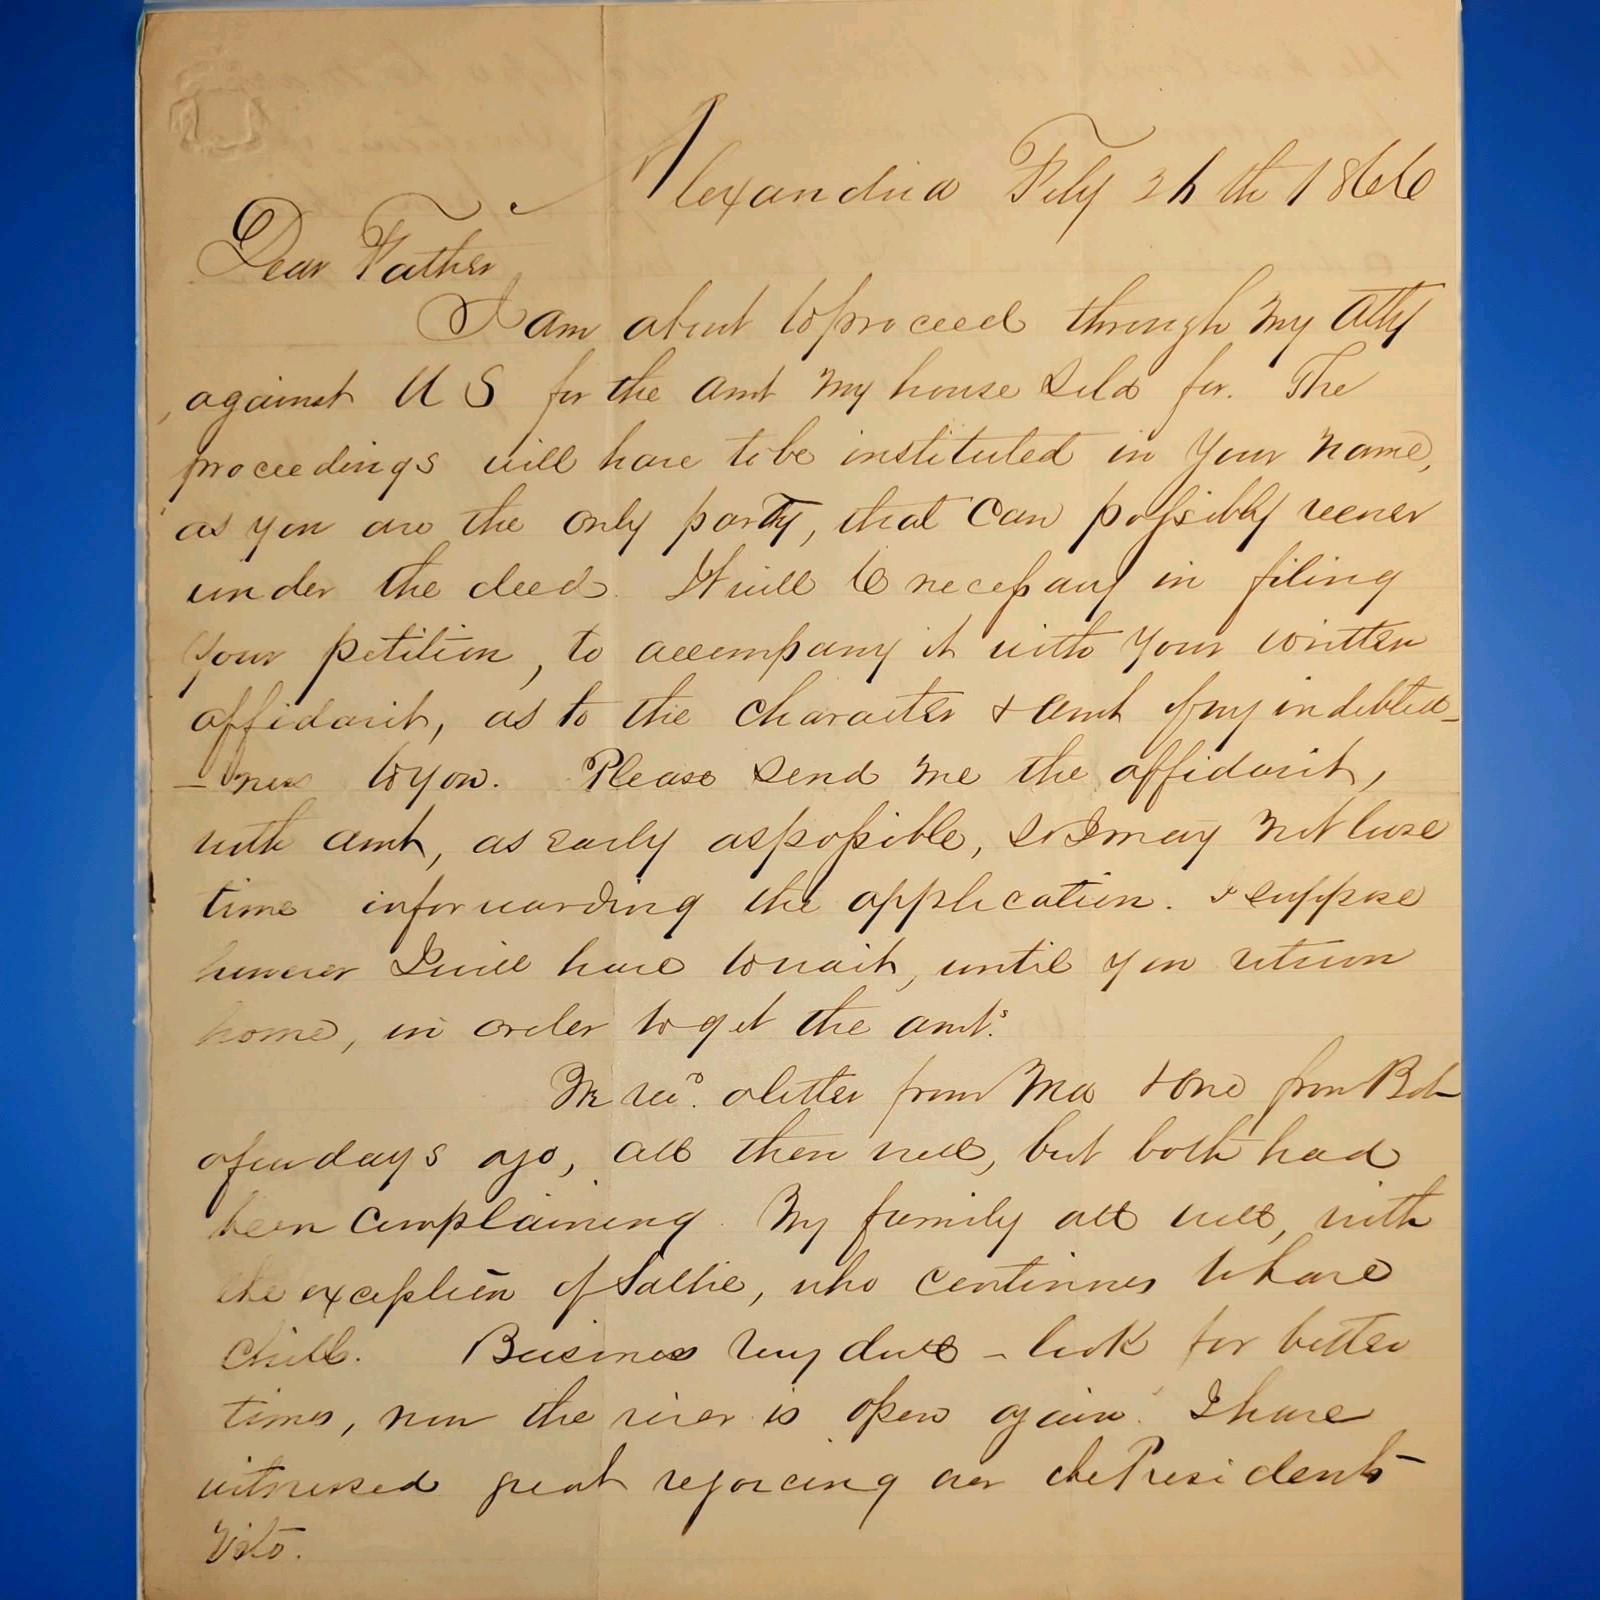 Alexandria Feby 26th 1866
Dear Father
I am about to proceed through my Atty
against U S for the amt my house sold for. The
proceedings will have to be instituted in your name,
as you are the only party, that can possibly recover
under the deed. It will be necessary in filing
your petition, to accompany it with your written
affidavit, as to the character & amt of my indebted-
-ness to you. Please send me the affidavit,
with amt, as early as possible, so I may not lose
time in forwarding the application. I suppose
however I will have to wait, until you return
home, in order to get the amt.s
We recd. a letter from Ma & one from Bob
a few days ago, all then well, but both had
been complaining. My family all well, with
the exception of Sallie, who continues to have
chills. Business very dull - look for better
times, now the river is open again. I have
witnessed great rejoicing over the Presidents
Veto.